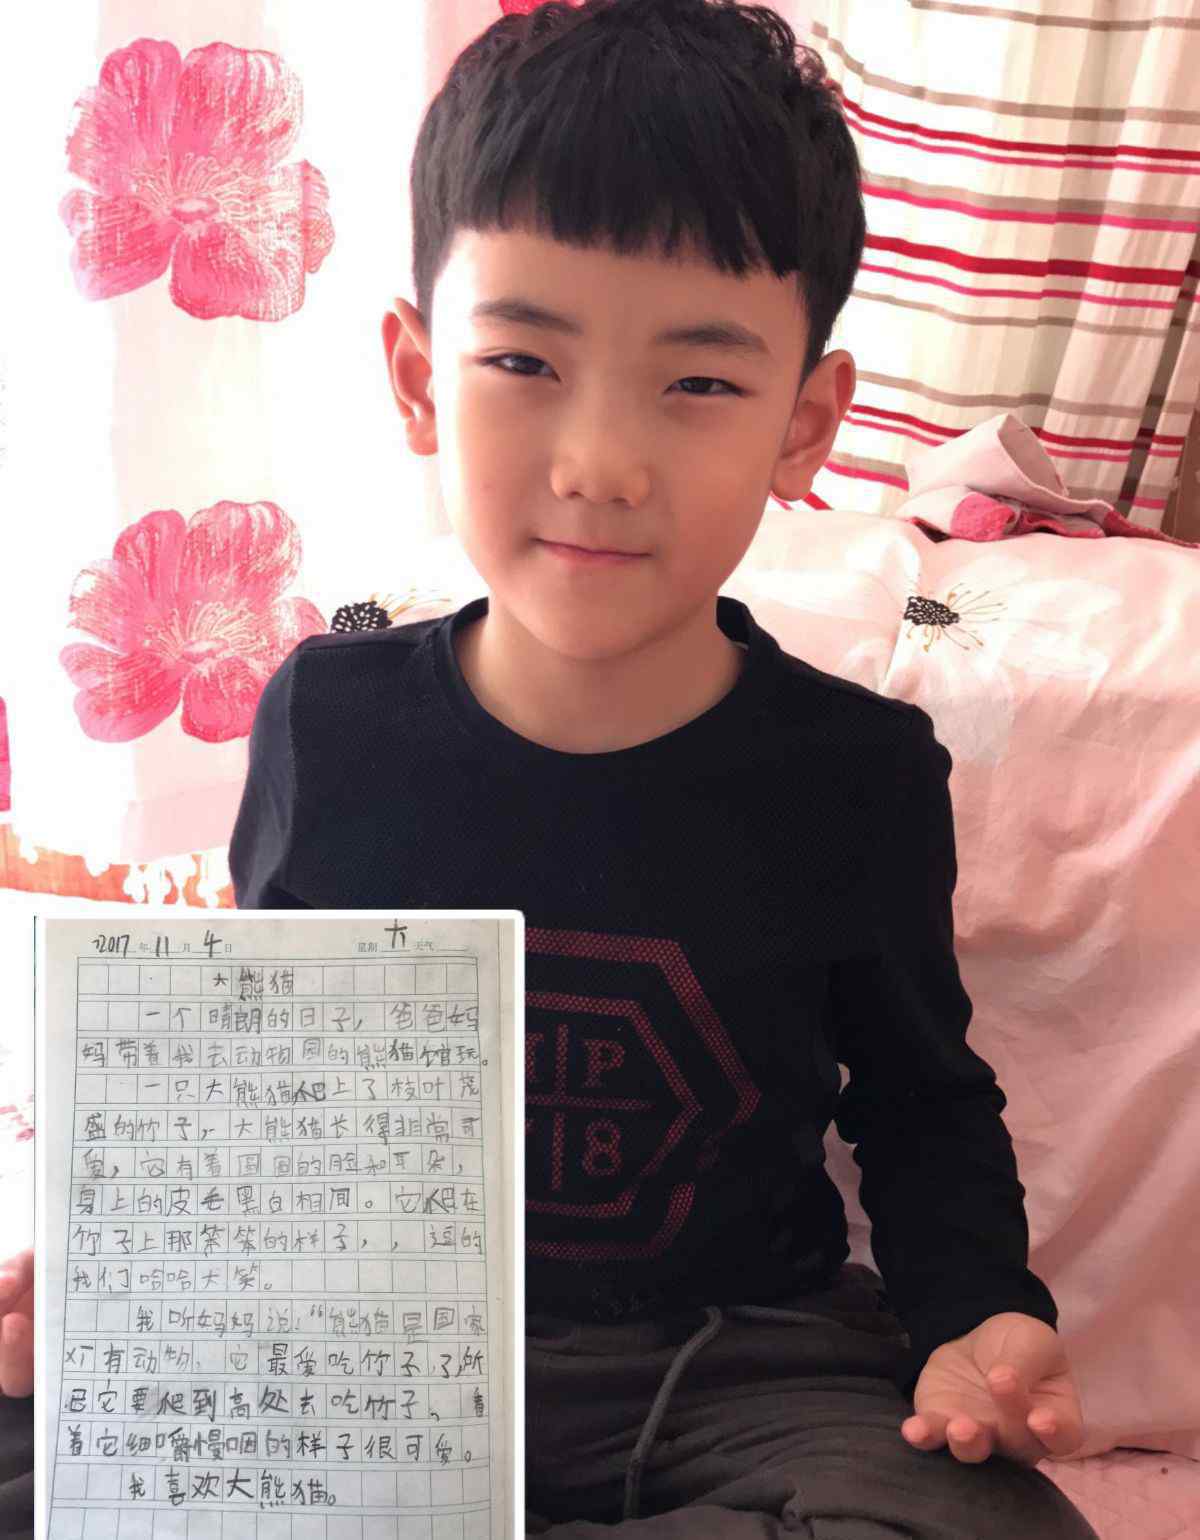 2017年11月4日 星期六 天气
大熊猫
一个晴朗的日子，爸爸妈
妈带着我去动物园的熊猫馆玩。
一只大熊猫爬上了枝叶茂
盛的竹子，大熊猫长得非常可
爱，它有着圆圆的脸和耳朵，
身上的皮毛黑白相间。它爬在
竹子上那笨笨的样子，，逗的
我们哈哈大笑。
我听妈妈说：“熊猫是国家
有动物，它最爱吃竹子了，所
已它要爬到高处去吃竹子、看
着它细嚼慢咽的样子很可爱。
我喜欢大熊猫。
P
8